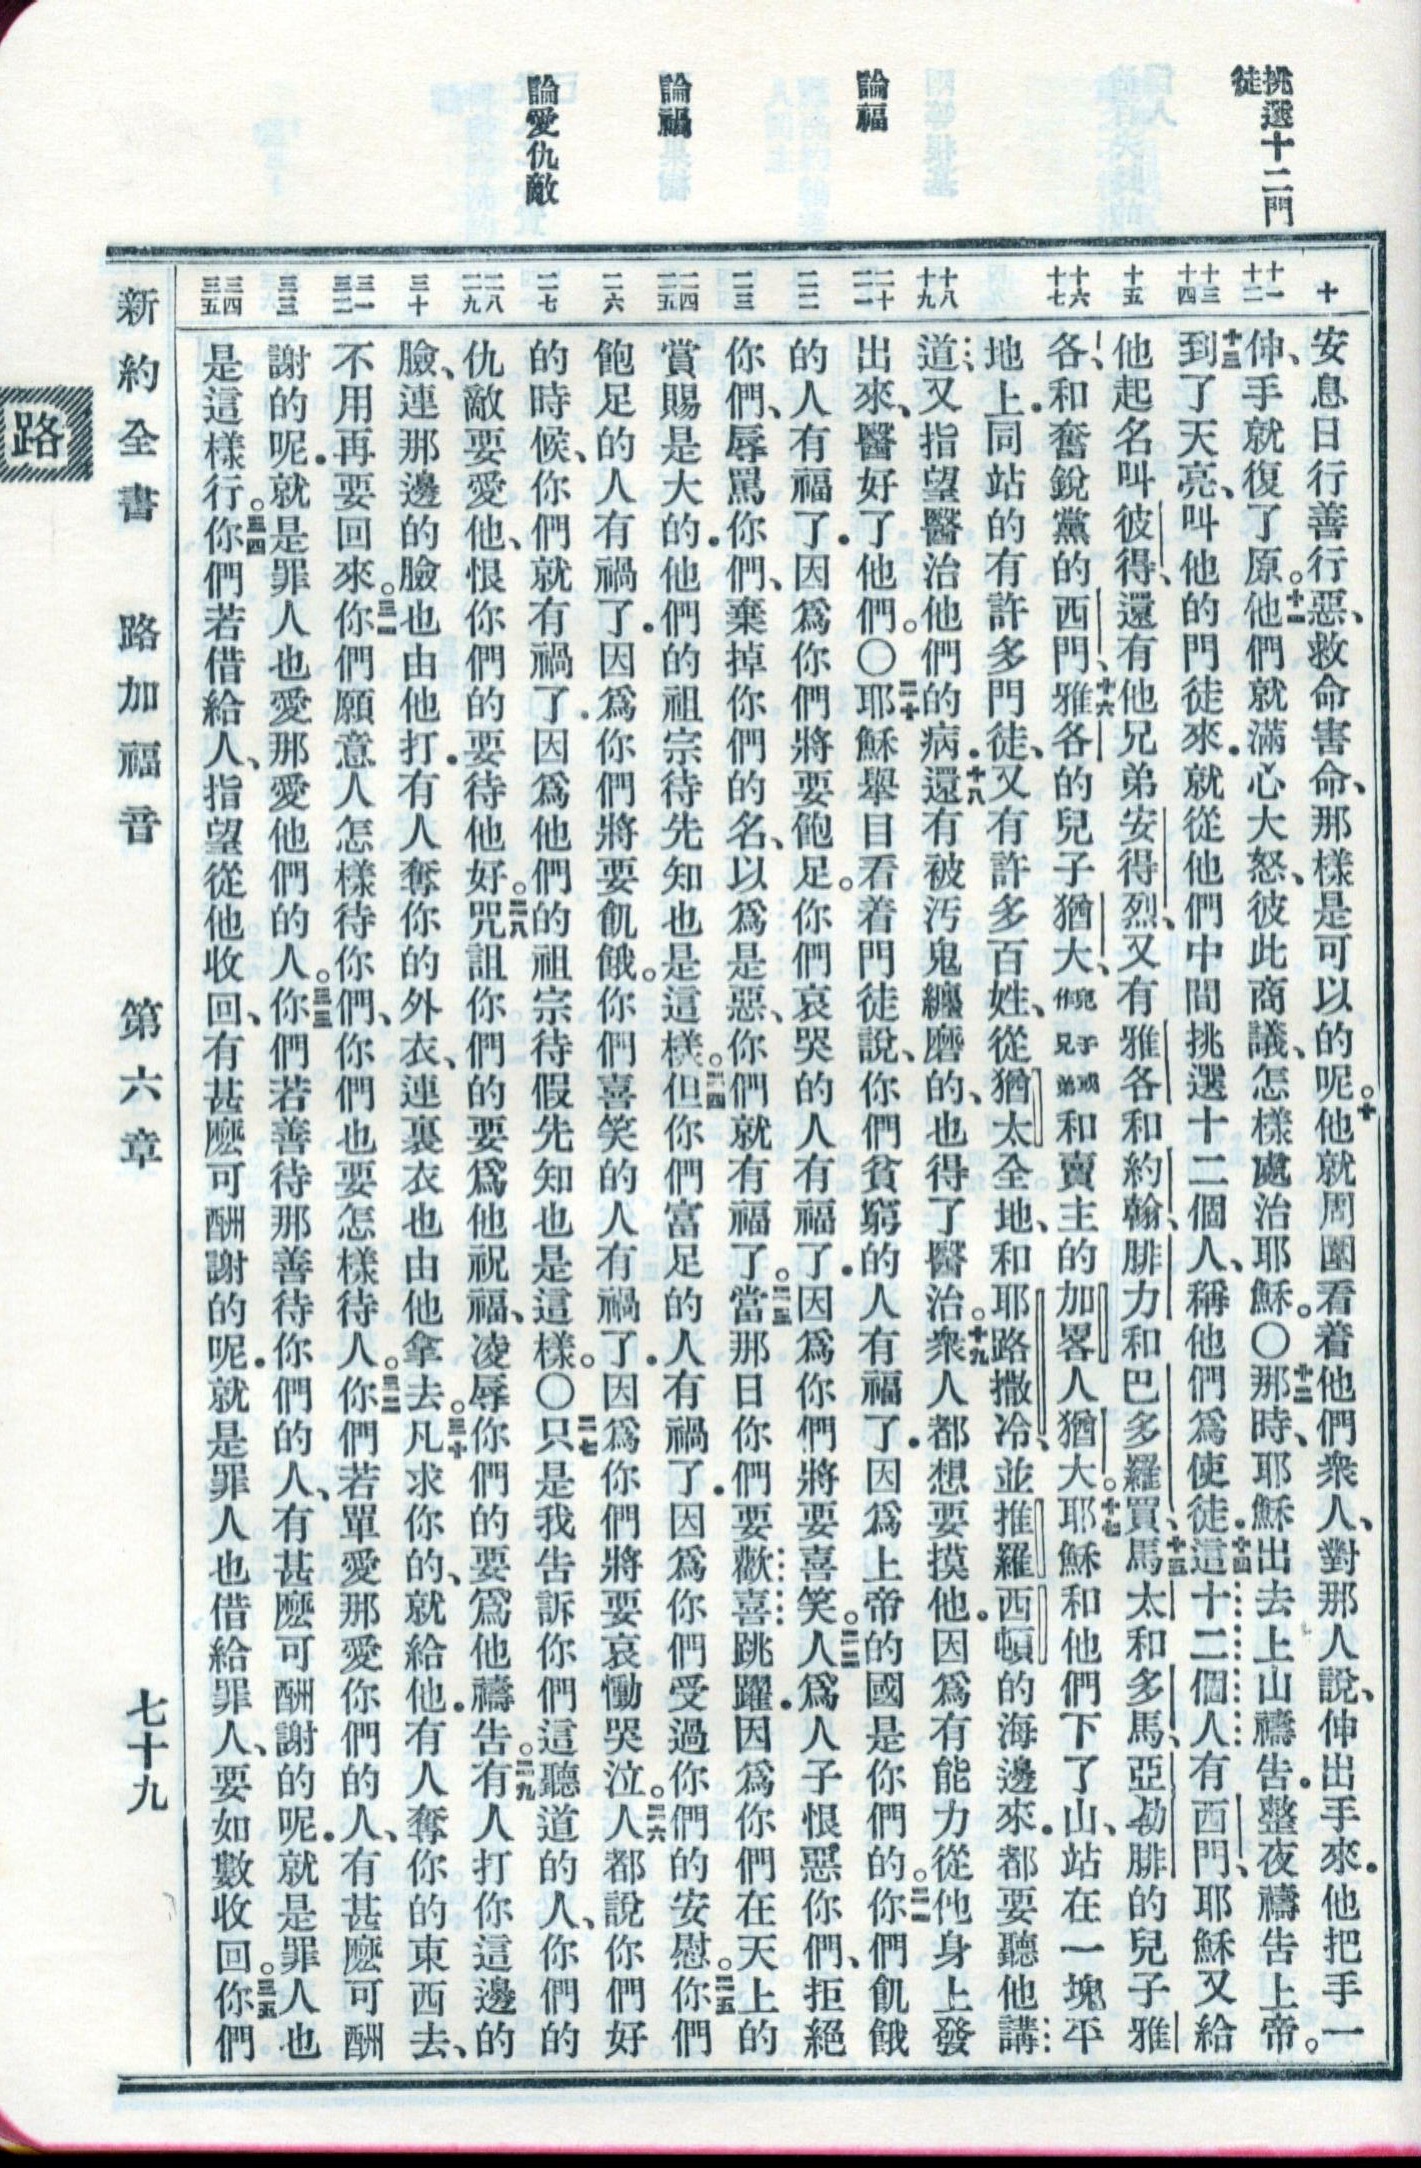 挑選十二門
徒
論福
論禍
論愛仇敵
十
安息日行善行惡、救命害命、那樣是可以的呢。十他就周圍看着他們衆人、對那人說、伸出手來．他把手一
十一
十二
伸、手就復了原。十一他們就滿心大怒、彼此商議、怎樣處治耶穌。〇十二那時、耶穌出去上山禱告．整夜禱告上帝。
十三
十四
十三到了天亮、叫他的門徒來．就從他們中間挑選十二個人、稱他們爲使徒．十四這十二個人有西門、耶穌又給
十五
他起名叫彼得、還有他兄弟安得烈、又有雅各和約翰、腓力和巴多羅買、十五馬太和多馬、亞勒腓的兒子雅
十六
十七
各、和奮銳黨的西門、十六雅各的兒子猶大、兒子或作兄弟和賣主的加畧人猶大。十七耶穌和他們下了山、站在一塊平
地上．同站的有許多門徒、又有許多百姓、從猶太全地、和耶路撒冷、並推羅西頓的海邊來．都要聽他講
十八
十九
道、又指望醫治他們的病．十八還有被汚鬼纏磨的、也得了醫治。十九衆人都想要摸他．因爲有能力從他身上發
二十
二一
出來、醫好了．他們。〇二十耶穌舉目看着門徒說、你們貧窮的人有福了．因爲上帝的國是你們的。二一你們飢餓
二二
的人有福了．因爲你們將要飽足。你們哀哭的人有福了．因爲你們將要喜笑。二二人爲人子恨惡你們、拒絕
二三
你們、辱罵你們、棄掉你們的名、以爲是惡、你們就有福了。二三當那日你們要歡喜跳躍．因爲你們在天上的
二四
二五
賞賜是大的．他們的祖宗待先知也是這樣。二四但你們富足的人有禍了．因爲你們受過你們的安慰。二五你們
二六
飽足的人有禍了．因爲你們將要飢餓。你們喜笑的人有禍了．因爲你們將要哀慟哭泣。二六人都說你們好
二七
的時候、你們就有禍了．因爲他們的祖宗待假先知也是這樣。〇二七只是我告訴你們這聽道的人、你們的
二八
二九
仇敵要愛他、恨你們的要待他好。二八咒詛你們的要爲他祝福、凌辱你們的要爲他禱告。二九有人打你這邊的
三十
臉、連那邊的臉也由他打．有人奪你的外衣、連裏衣也由他拿去。三十凡求你的、就給他．有人奪你的東西去、
三一
三二
不用再要回來。三一你們願意人怎樣待你們、你們也要怎樣待人。三二你們若單愛那愛你們的人、有甚麽可酬
三三
謝的呢．就是罪人也愛那愛他們的人。三三你們若善待那善待你們的人、有甚麽可酬謝的呢．就是罪人也
三四
三五
是這樣行。三四你們若借給人、指望從他收回、有甚麽可酬謝的呢．就是罪人也借給罪人、要如數收回。三五你們
新約全書　路加福音　第六章　七十九
路